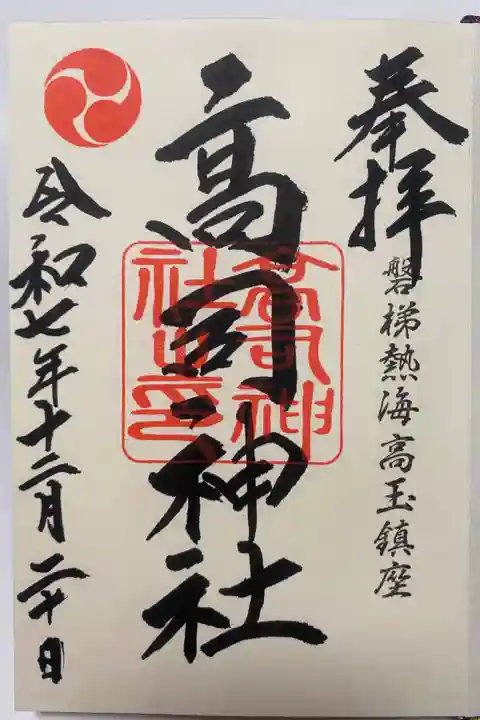 奉拝
磐梯熱海高玉鎮座
高司神社
高司神社之印
令和七年十二月二十日